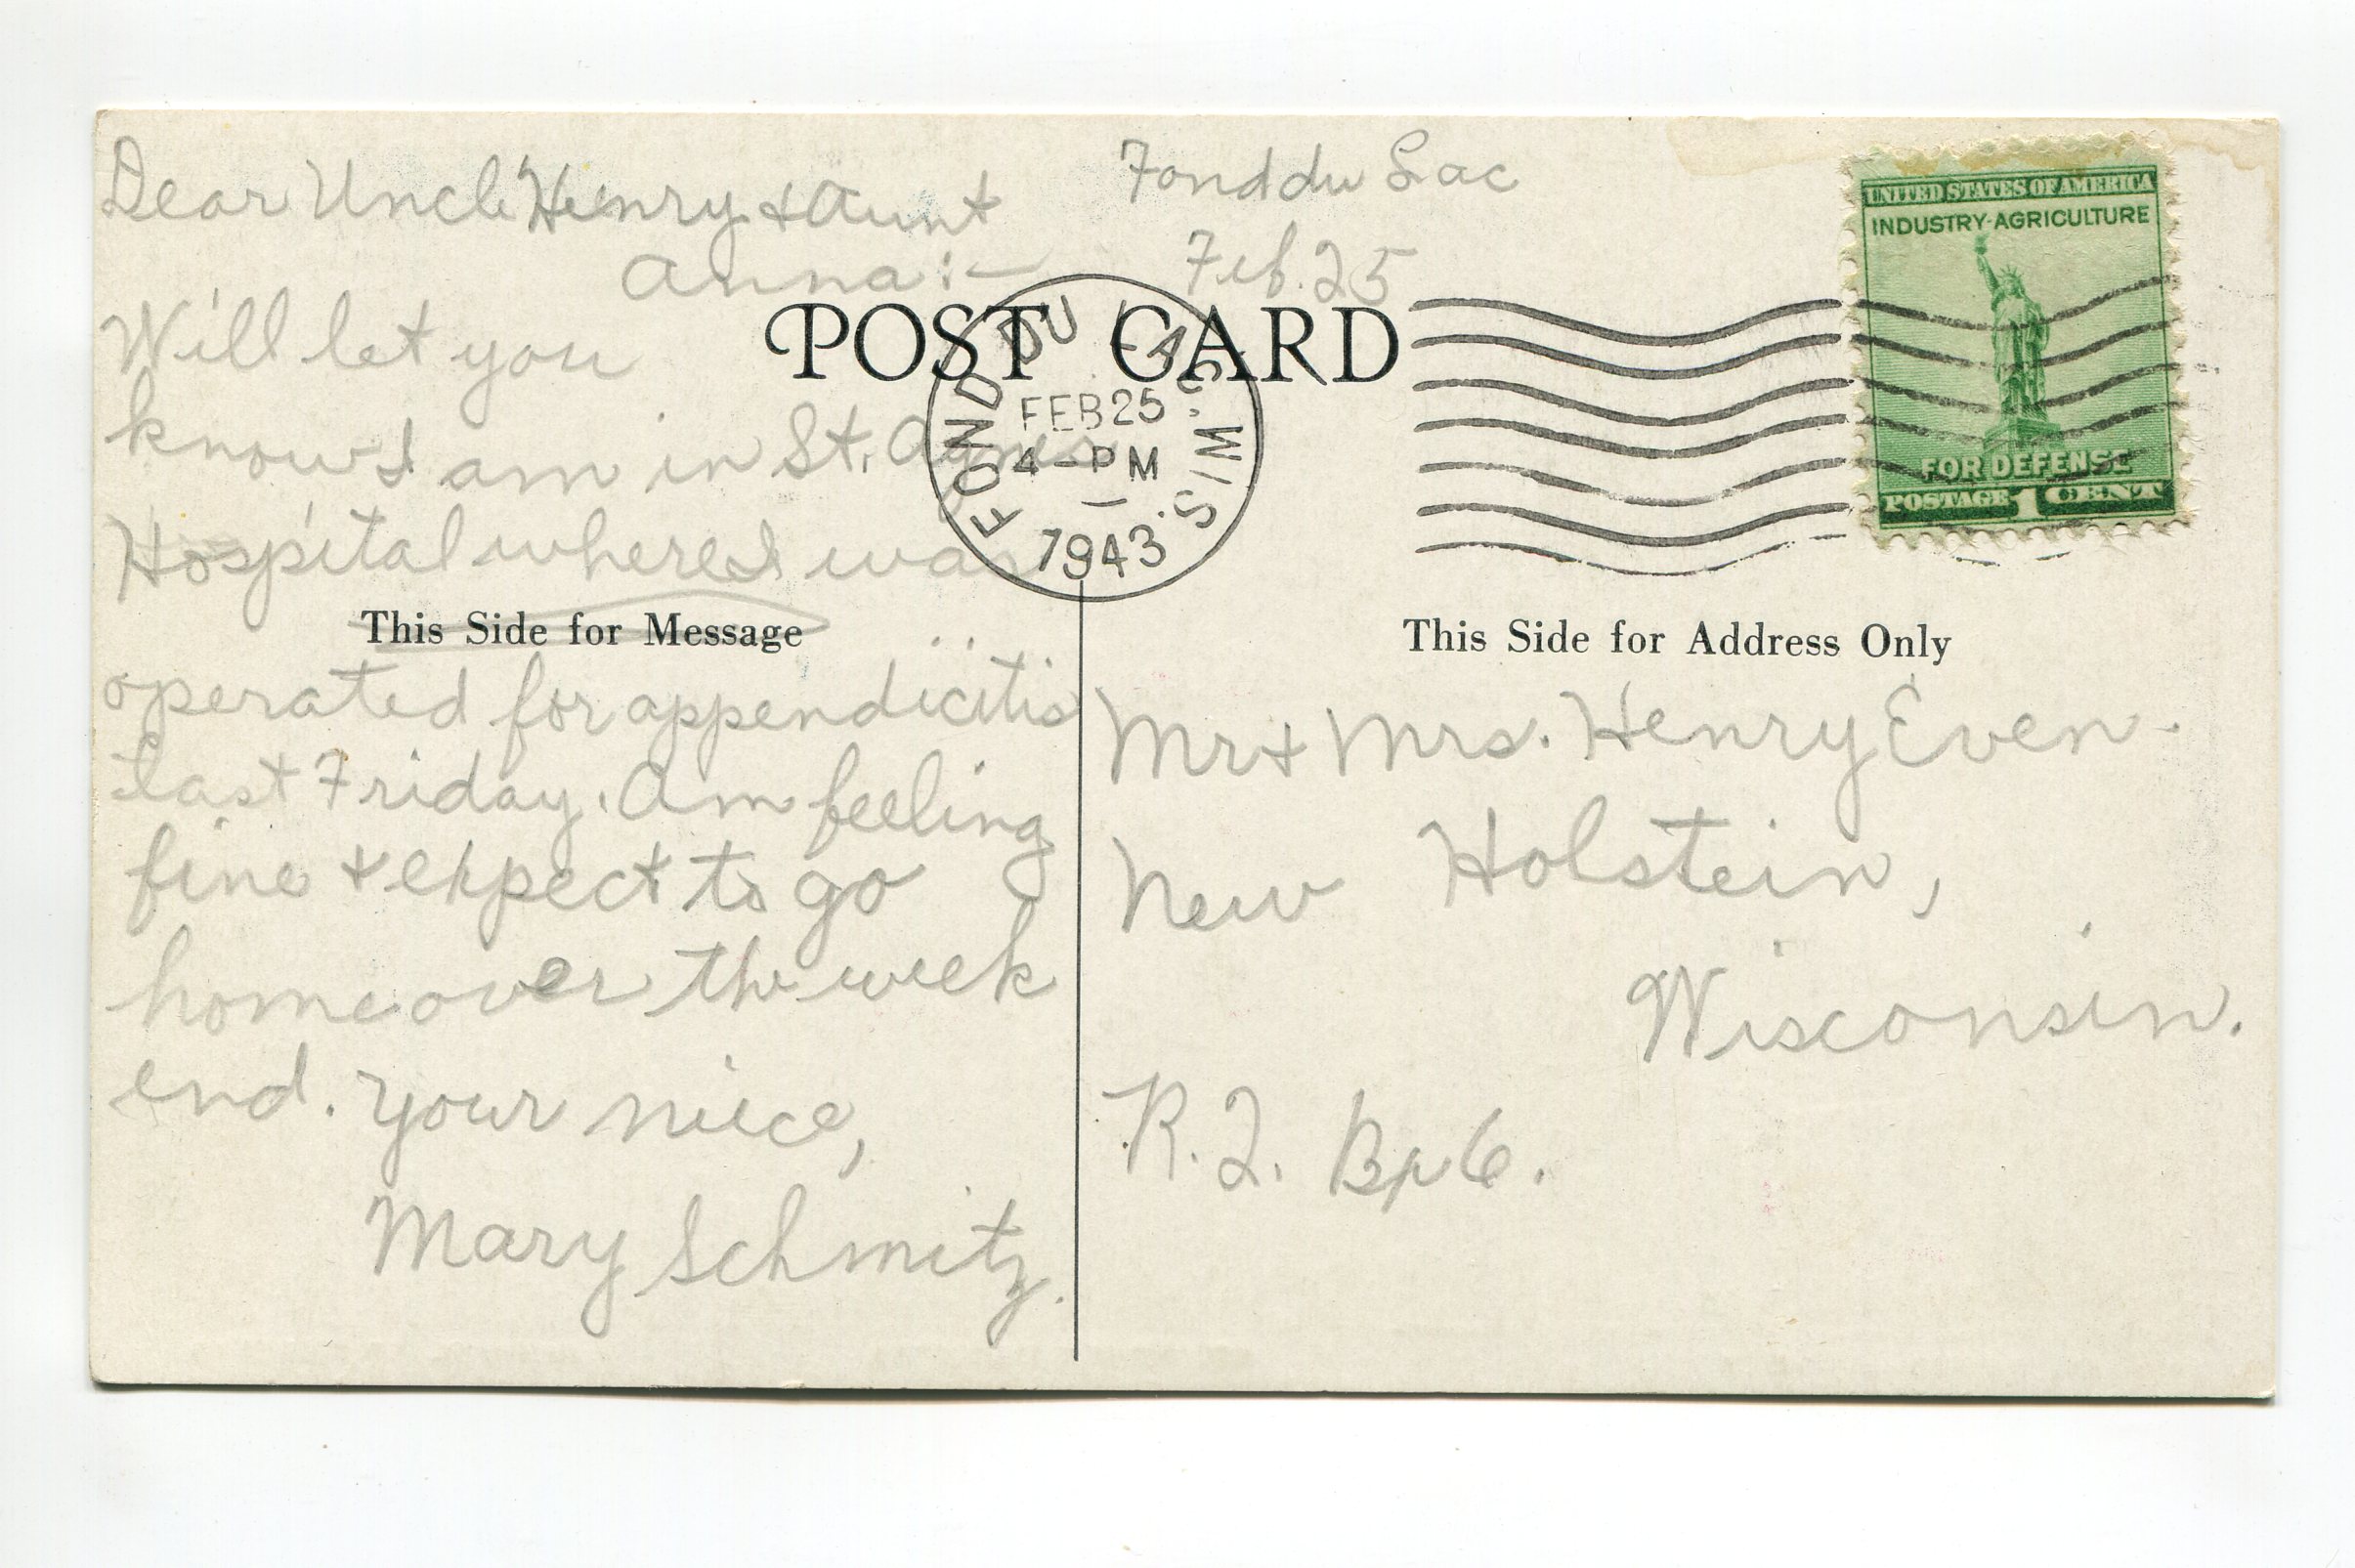 Dear Uncle Henry & Aunt
Anna:—
Will let you
know I am in St. Agnes
Hospital where I was
This Side for Message
operated for appendicitis
last Friday. Am feeling
fine & expect to go
home over the week
end. Your niece,
Mary Schmitz.
Fond du Lac
Feb. 25
POST CARD
FOND DU LAC, WIS.
FEB 25
4-PM
1943
UNITED STATES OF AMERICA
INDUSTRY-AGRICULTURE
FOR DEFENSE
POSTAGE 1 CENT
This Side for Address Only
Mr & Mrs. Henry Even.
New Holstein,
Wisconsin.
R. 2. Bx 6.